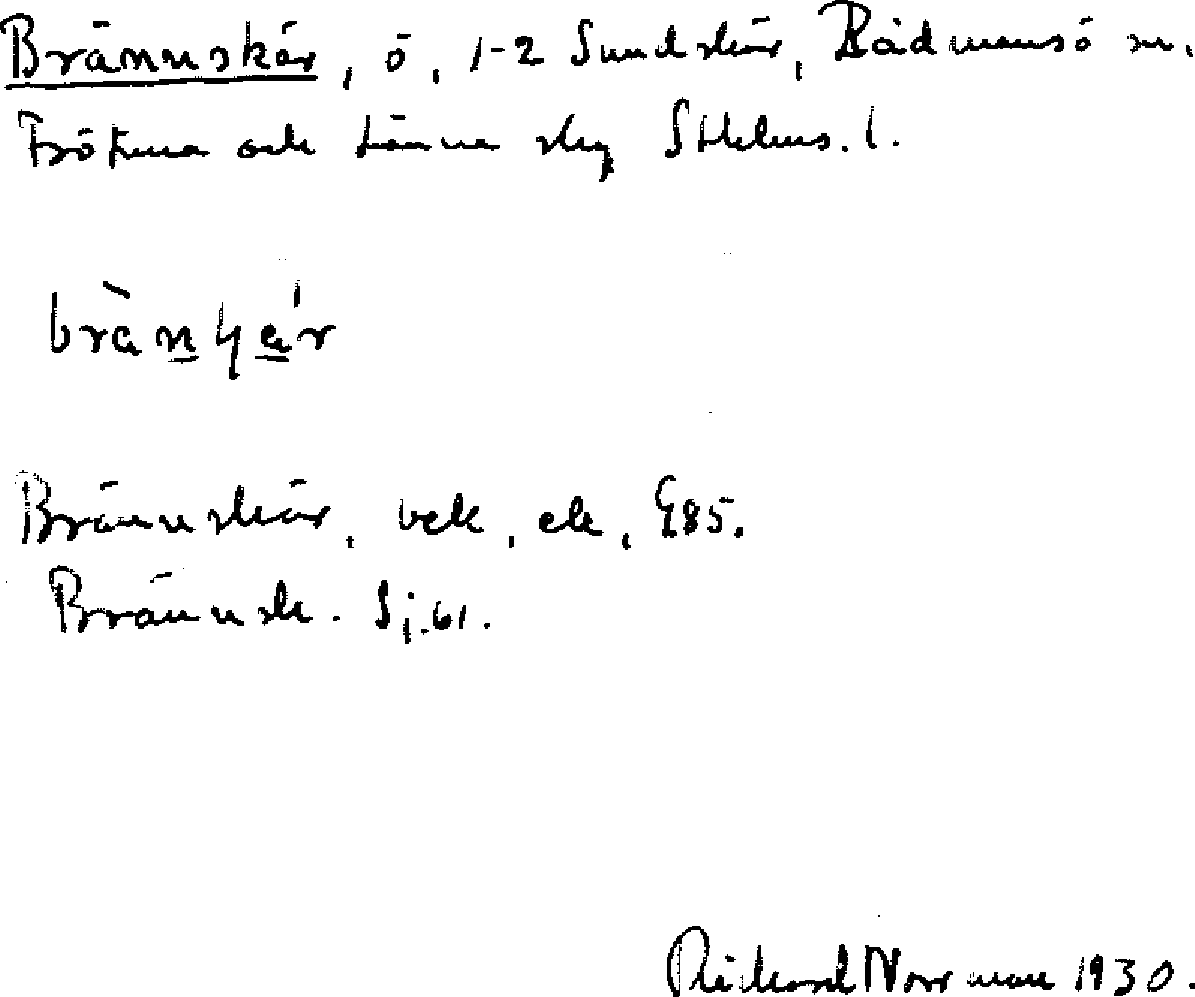 Brännskär, ö, 1-2 Sundskär, Rådmansö sn.
Frötuna och Länna skg Sthlms. l.
brànɥár
Brännskär, bek, ek, E85.
Brännsk. Sj. 61.
Rickard Norrman 1930.